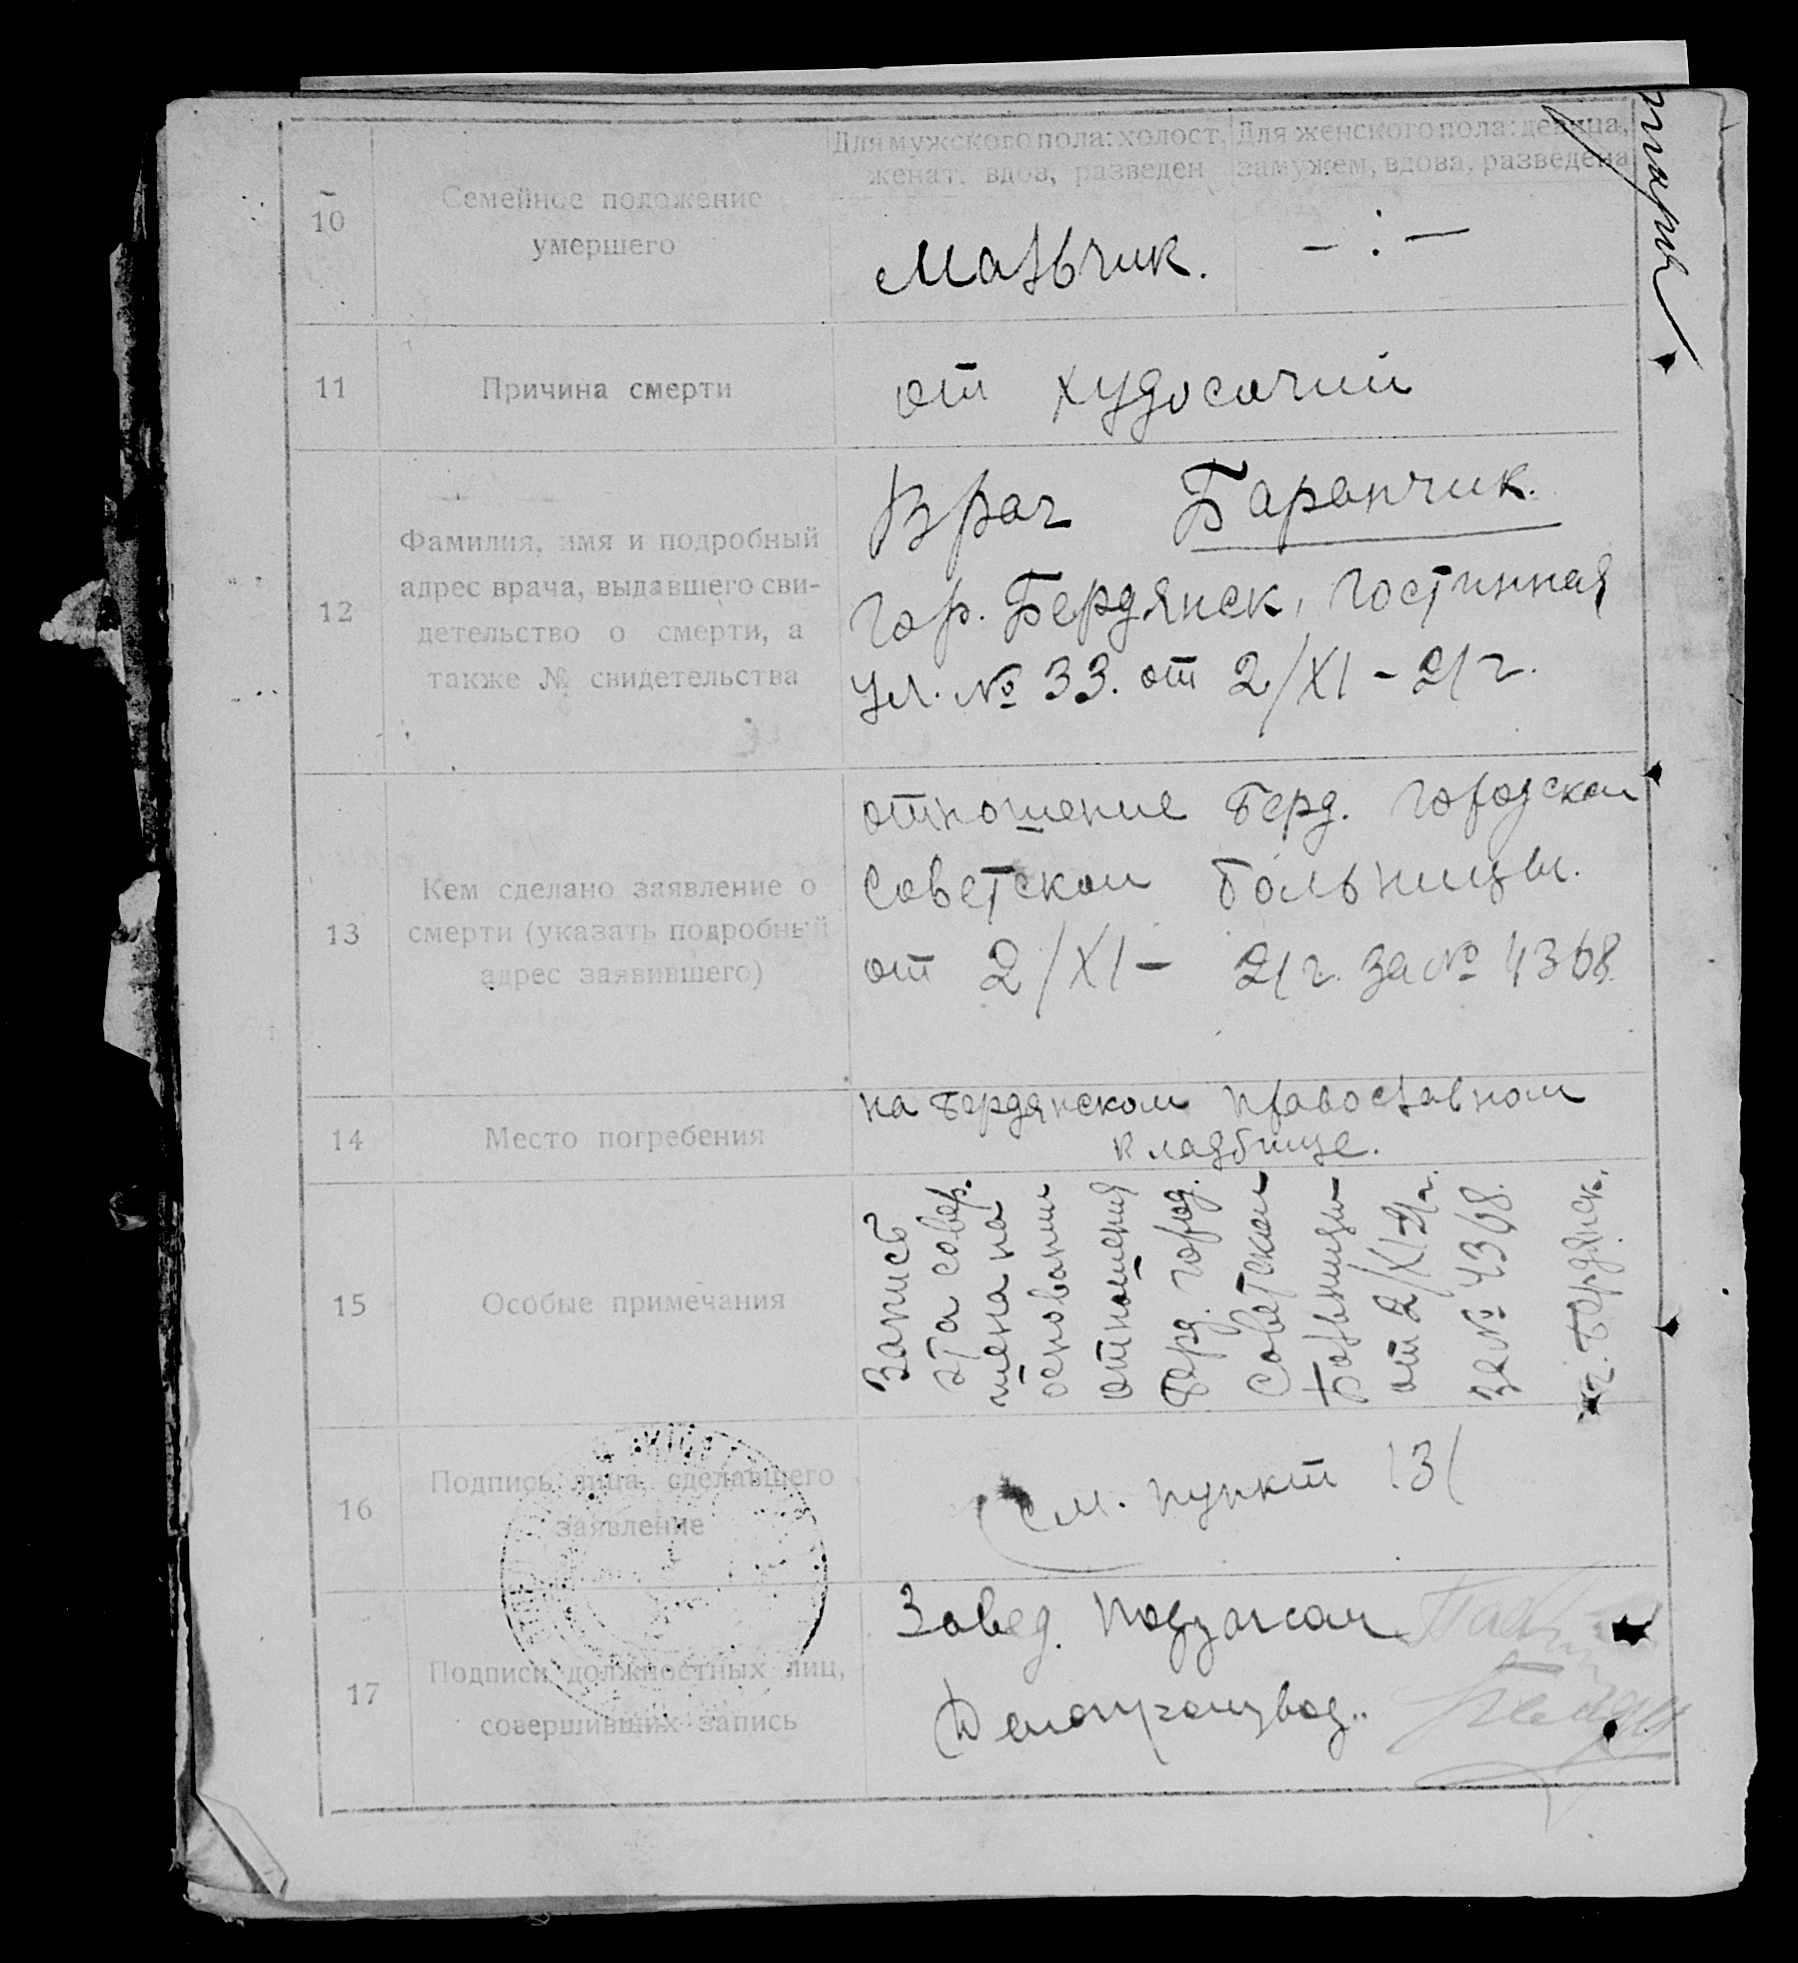 10
Семейное положение
умершего
Для мужского пола: холост,
женат, вдов, разведен
Для женского пола: девица,
замужем, вдова, разведена
Мальчик.
— : —
11
Причина смерти
от худосочии
12
Фамилия, имя и подробный
адрес врача, выдавшего сви-
детельство о смерти, а
также № свидетельства
Врач Баранчик.
гор. Бердянск, Гостинная
ул. № 33. от 2/XI – 21 г.
13
Кем сделано заявление о
смерти (указать подробный
адрес заявившего)
отношение Берд. городской
Советской больницы.
от 2/XI – 21 г. за № 4368.
14
Место погребения
на Бердянском православном
кладбище.
15
Особые примечания
Запись
эта совер.
шена на
основании
отношения
Берд. город.
Советской
Больницы
от 2/XI-21 г.
за № 4368.
г. Бердянск.
16
Подпись лица, сделавшего
заявление
см. пункт 13
17
Подписи должностных лиц,
совершивших запись
Завед. Подзагсом
Делопроизвод..